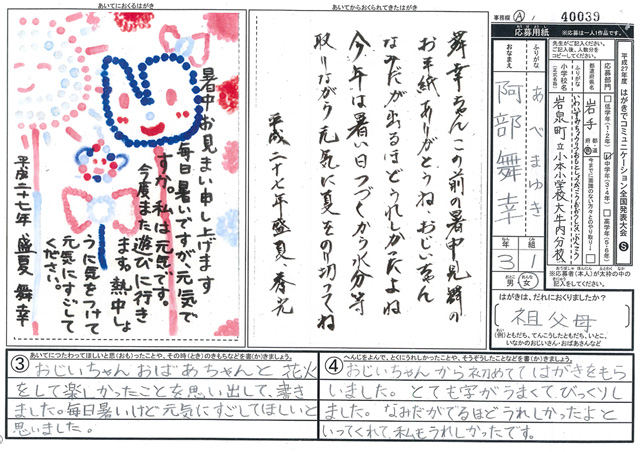 あいてにおくるはがき
暑中お見まい申し上げます
毎日暑いですが、元気で
すか。私は元気です。
今度また遊びに行き
ます。熱中しょ
うに気をつけて
元気にすごして
ください。
平成二十七年 盛夏 舞幸
あいてからおくられてきたはがき
舞幸ちゃんこの前の暑中見舞の
お手紙ありがとうね、おじいちゃん
なみだが出るほどうれしかったよね
今年は暑い日つづくから水分等
取りながら元気に夏をのり切ってね
平成二十七年盛夏、春光
事務局 A 1 40039
平成27年度 はがきでコミュニケーション全国発表大会 S
応募用紙
※応募は一人1作品です。
先生がご記入ください。
ご記入後、人数分を
コピーしてください。
応募部門
低学年(1・2年)
中学年(3・4年)
高学年(5・6年)
都道府県名
岩手
都 道
府 県
今までに面識のない方とのやり取り
ふりがな
小学校名
(正式名称)
岩泉町立小本小学校大牛内分校
ふりがな
おなまえ
あべまゆき
阿部舞幸
年 3
組 1
おとこ 男
おんな 女
※応募者(本人)が太枠の中の
記入をしてください。
はがきは、だれにおくりましたか?
祖父母
(例)ともだち、てんこうしたともだち、いとこ、
いなかのおじいさん・おばあさんなど
あいてにつたわってほしいと思(おも)ったことや、その時(とき)のきもちなどを書(か)きましょう。
③ おじいちゃんおばあちゃんと花火
をして楽しかったことを思い出して、書き
ました。毎日暑いけど元気にすごしてほしいと
思いました。
へんじをよんで、とくにうれしかったことや、そうぞうしたことなどを書(か)きましょう。
④ おじいちゃんから初めててはがきをもら
いました。とても字がうまくて、びっくりし
ました。なみだがでるほどうれしかったよと
いってくれて、私もうれしかったです。